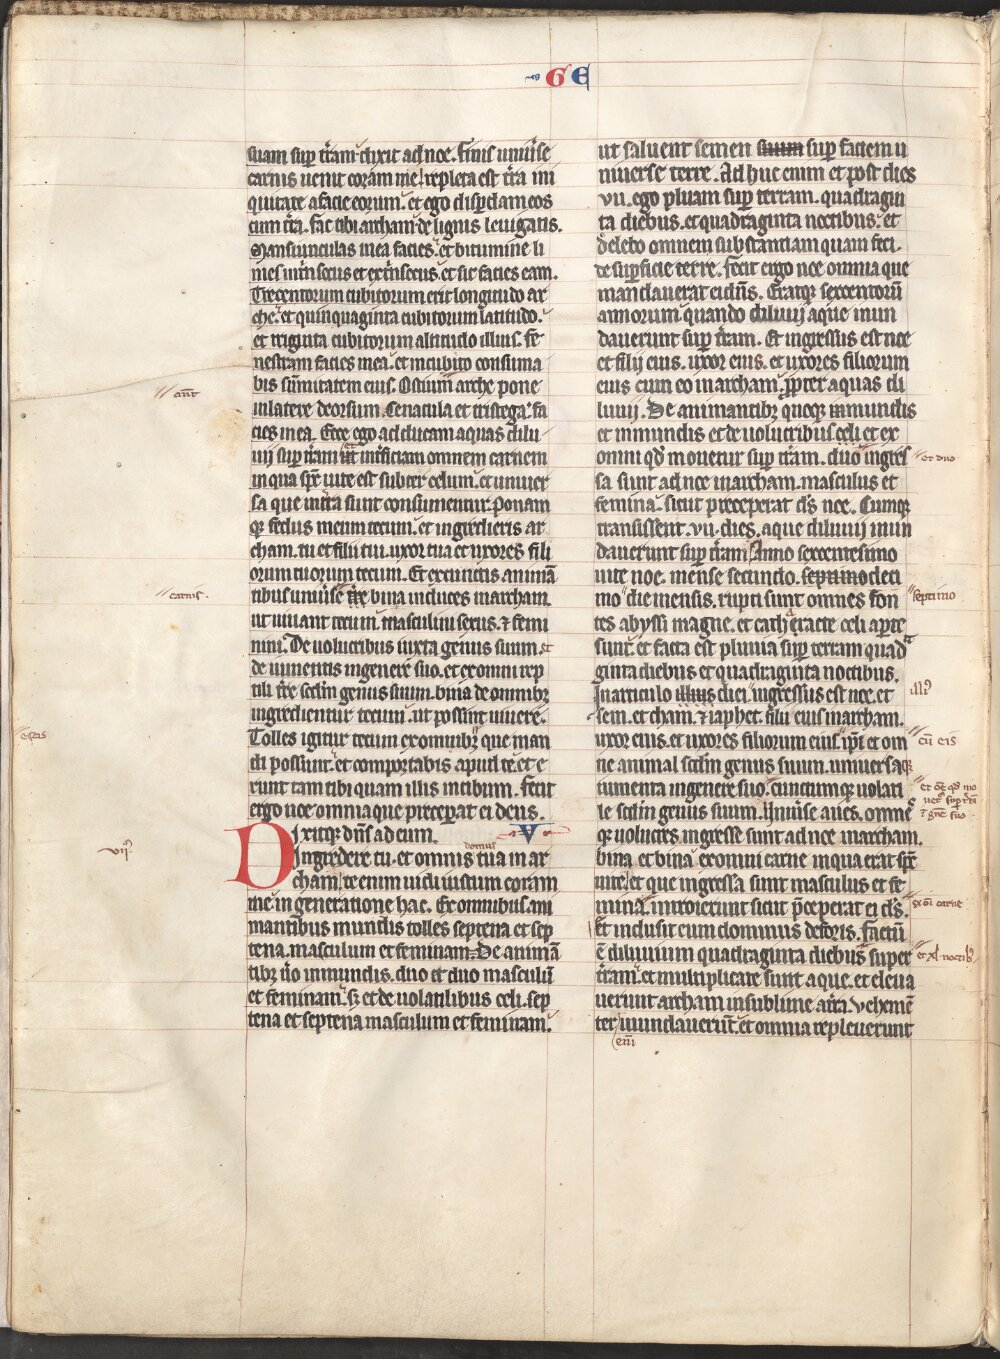 G E
suam sup t̃ram dixit ad noe. Finis uniũse
carnis uenit coram me repleta est t̃ra ini
quitate a facie eorum. et ego disp̃dam eos
cum t̃ra. fac tibi archam de lignis leuigatis.
Mansiunculas in ea facies. et bitumine li
nies int̃nsecus et ext̃nsecus. et sic facies eam.
Trecentorum cubitorum erit longitudo ar
che. et quinquaginta cubitorum latitudo.
et triginta cubitorum altitudo illius. fe
nestram facies in ea. et in cubito consũma
bis sũmitatem eius. Ostium arche pone
in latere deorsum. Cenacula et tristega. fa
cies in ea. Ecce ego adducam aquas dilu
uij sup t̃ram ut int̃ficiam omnem carnem
in qua sp̃c uite est subter celum. et uniuer
sa que in t̃ra sunt consumentur. Ponam
q; fedus meum tecum. et ingredieris ar
cham. tu et filii tui. uxor tua et uxores fili
orum tuorum tecum. Et ex cunctis animã
tibus uniũse bina induces in archam.
ut uiuant tecum. masculini sexus. ⁊ femi
nini. De uolucribus iuxta genus suum et
de iumentis in genere suo. et ex omni rep
tili t̃re sc̃dm genus suum. bina de omnibz
ingredientur tecum. ut possint uiuere.
Tolles igitur tecum ex omnibz que man
di possunt. et comportabis apud te. et e
runt tam tibi quam illis in cibum. fecit
ergo noe omnia que preceperat ei deus.
Dixitq; dñs ad eum.
Ingredere tu et omnis domus tua in ar
cham te enim uidi iustum coram
me in generatione hac. Ex omnibus ani
mantibus mundis tolles septena et sep
tena. masculum et feminam. De animã
tibz ũo inmundis. duo et duo masculũ
et feminam. s; et de uolatilibus celi. sep
tena et septena masculum et feminam.
ut saluent semen suum sup faciem u
niuerse terre. Ad huc enim et post dies
vii. ego pluam sup terram. quadragin
ta diebus. et quadraginta noctibus. et
delebo omnem substantiam quam feci.
de sup̃ficie terre. Fecit ergo noe omnia que
mandauerat ei dñs. Eratq; sexcentorũ
annorum quando diluuij aque inun
dauerunt sup t̃ram. Et ingressus est noe
et filij eius. uxor eius. et uxores filiorum
eius cum eo in archam. p̃pter aquas di
luuij. De animantibz quoq; mundis
et inmundis et de uolucribus celi et ex
omni qd̃ mouetur sup t̃ram. duo ingres
sa sunt ad noe in archam. masculus et
femina. sicut preceperat d̃s noe. Cumq;
transissent .vii. dies. aque diluuij inun
dauerunt sup t̃ram Anno sexcentesimo
uite noe. mense secundo. septimo deci
mo die mensis. rupti sunt omnes fon
tes abyssi magne. et catheracte celi aperte
sunt. et facta est pluuia sup terram quad
ginta diebus et quadraginta noctibus.
In articulo illius diei ingressus est noe. et
sem. et cham. ⁊ iaphet. filii eius in archam.
uxor eius. et uxores filiorum eius. ip̃i et om
ne animal sc̃dm genus suum. uniuersaq;
iumenta in genere suo. cunctumq; uolati
le sc̃dm genus suum. Uniũse aues. omnes
q; uolucres ingresse sunt ad noe in archam.
bina et bina ex omni carne in qua erat sp̃c
uite. et que ingressa sunt masculus et fe
mina. introierunt sicut p̃ceperat ei d̃s.
Et inclusit eum dominus deforis. Factũ
ẽ diluuium quadraginta diebus super
t̃ram. et multiplicate sunt aque. et eleua
uerunt archam in sublime a t̃ra. Vehemẽ
ter inundauerũt. et omnia repleuerunt
V
carnis.
estis
vii⁹
et duo
septimo
illi⁹
cũ eis
et oẽ qd̃ mo
uet̃ sup t̃rã
ĩ gñe suo
ex oĩ carne
et xl noctib⁹
eñi